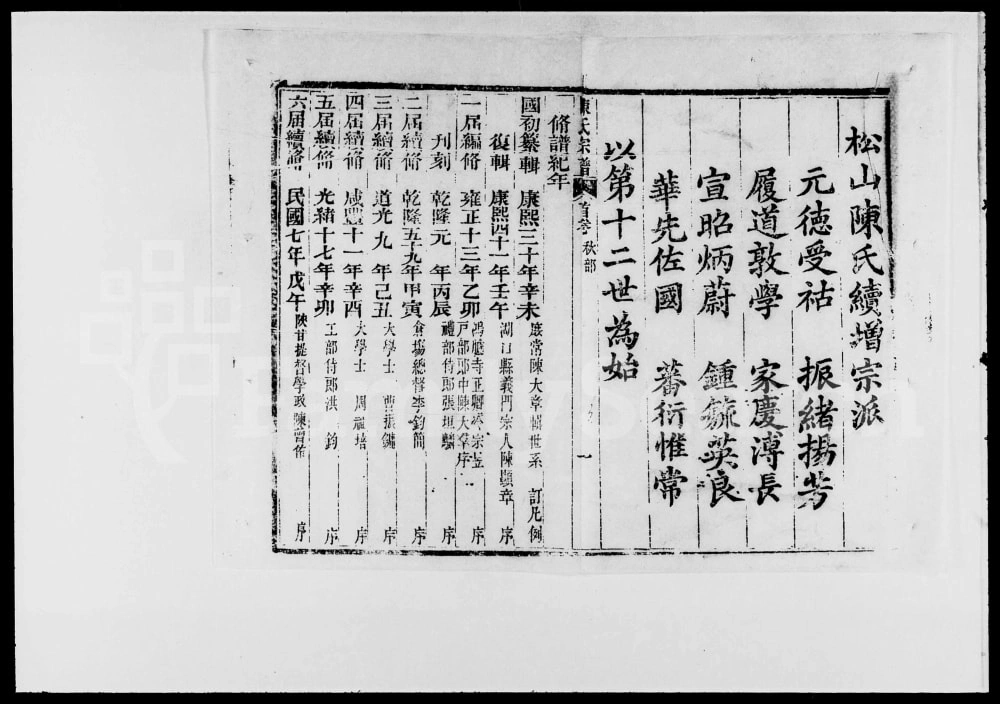 松山陳氏續增宗派
元德受祜　振緒揚芳
履道敦學　家慶溥長
宣昭炳蔚　鍾毓英良
華先佐國　蕃衍惟常
以第十二世為始
陳氏宗譜　首卷　秋部　一
修譜紀年
國初纂輯　康熙三十年辛未　陳大章輯世系　訂凡例
復輯　康熙四十一年壬午　湖口縣義門宗人陳顯章　序
一届編脩　雍正十三年乙卯　鴻臚寺正卿　宗　序
刊刻　乾隆元年丙辰　戶部郎中陳大羣序　禮部侍郎張垣麟　序
二届續脩　乾隆五十九年甲寅　倉塲總督李鈞簡　序
三届續脩　道光九年己丑　大學士　曹振鏞　序
四届續脩　咸豐十一年辛酉　大學士　周祖培　序
五届續脩　光緒十七年辛卯　工部侍郎洪鈞　序
六届續脩　民國七年戊午　陝甘提督學政陳曾佑　序